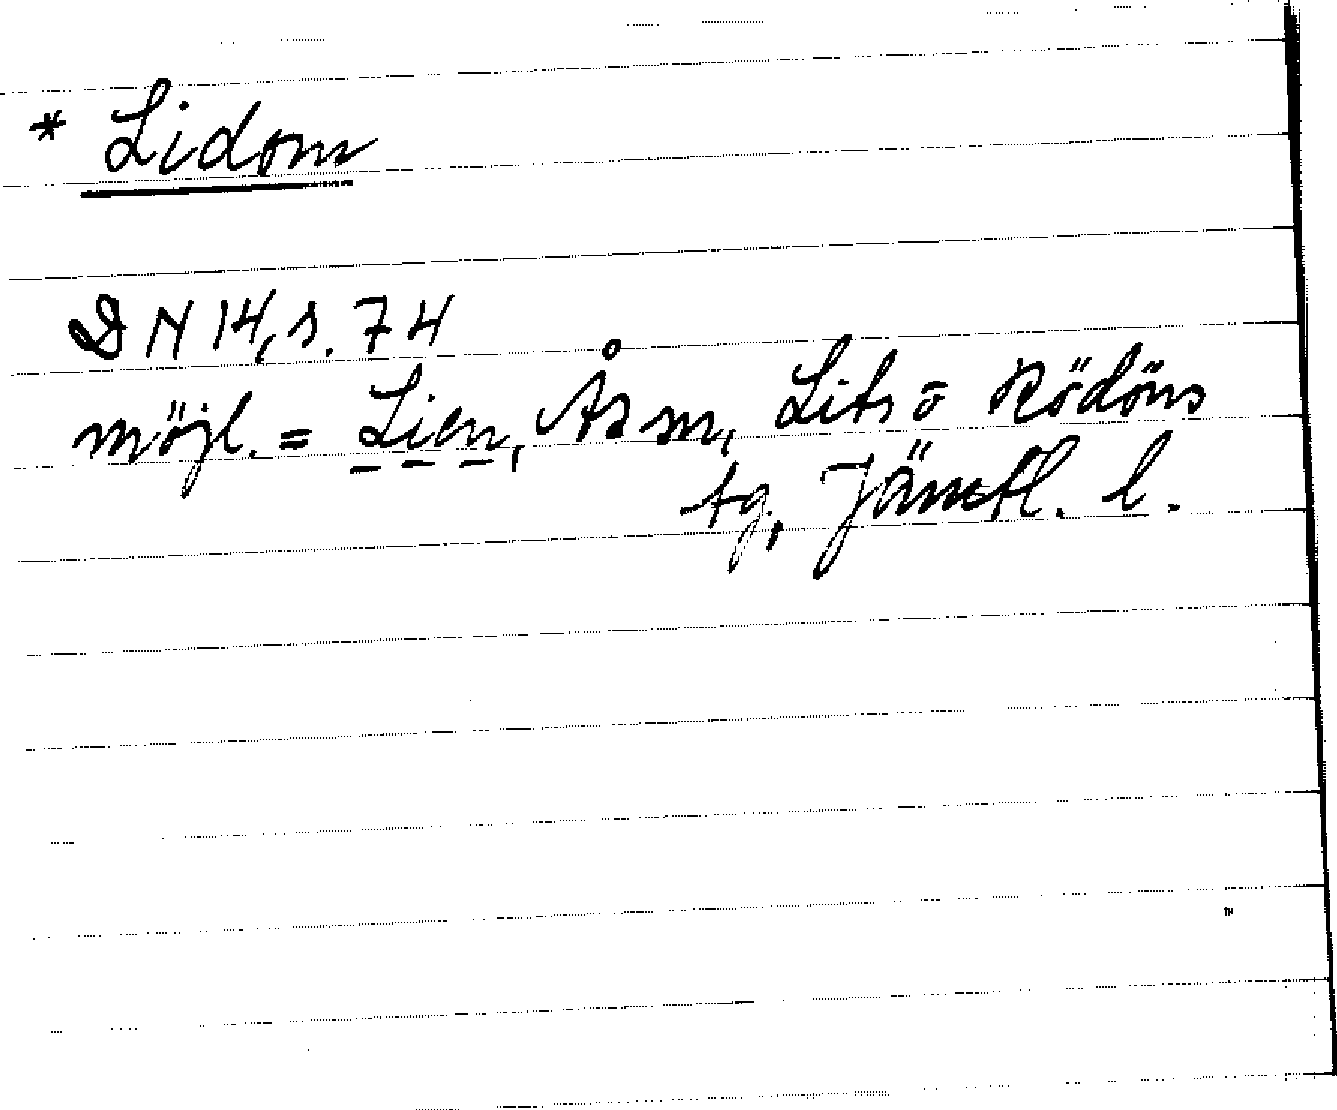 * Lidom
DN 14, s. 74
möjl. = Lien, Ås sn, Lits o Rödöns
tg, Jämtl. l.